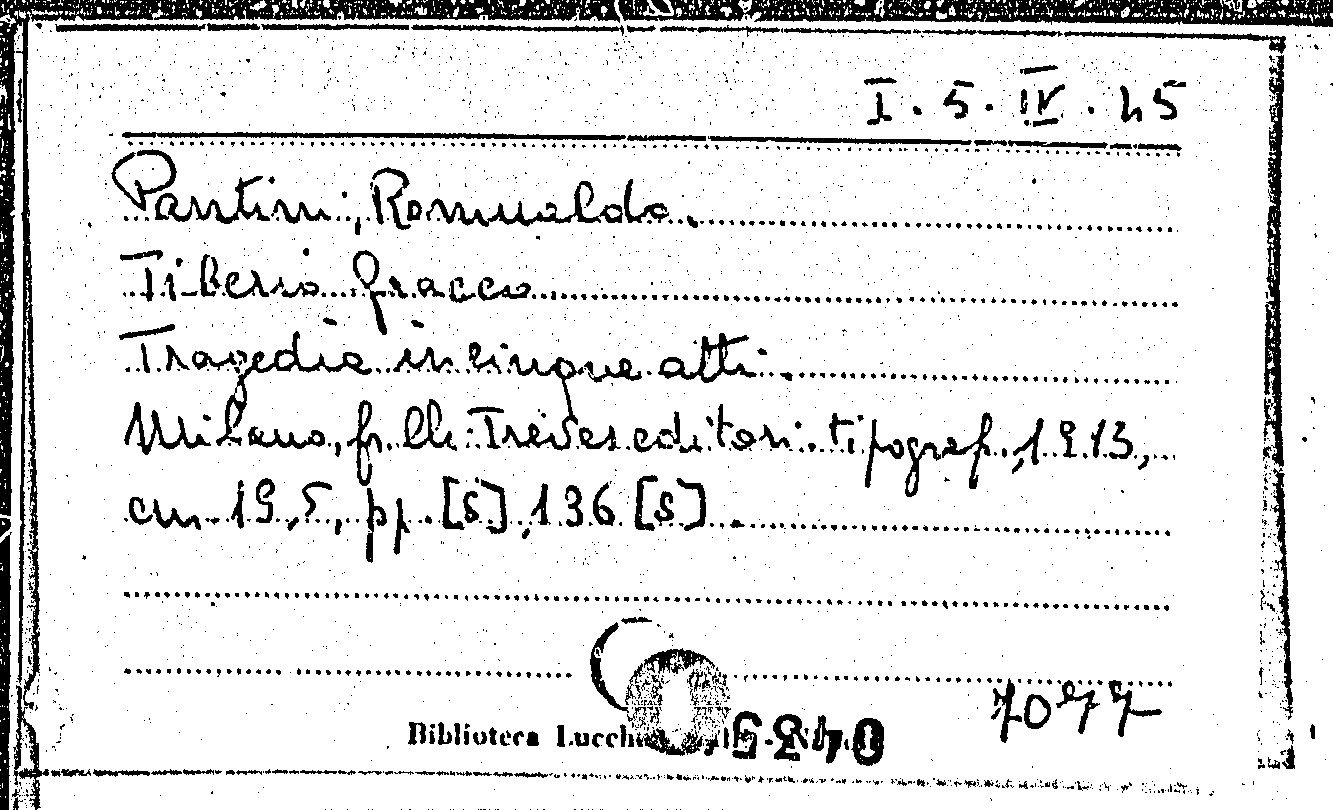 I. 5. IV. 45
Pantini, Romualdo.
Tiberio Gracco
Tragedia in cinque atti.
Milano, fr.lli Treves editori tipograf., 1913,
cm 19,5, pp. [8], 136 [8].
7077
Biblioteca